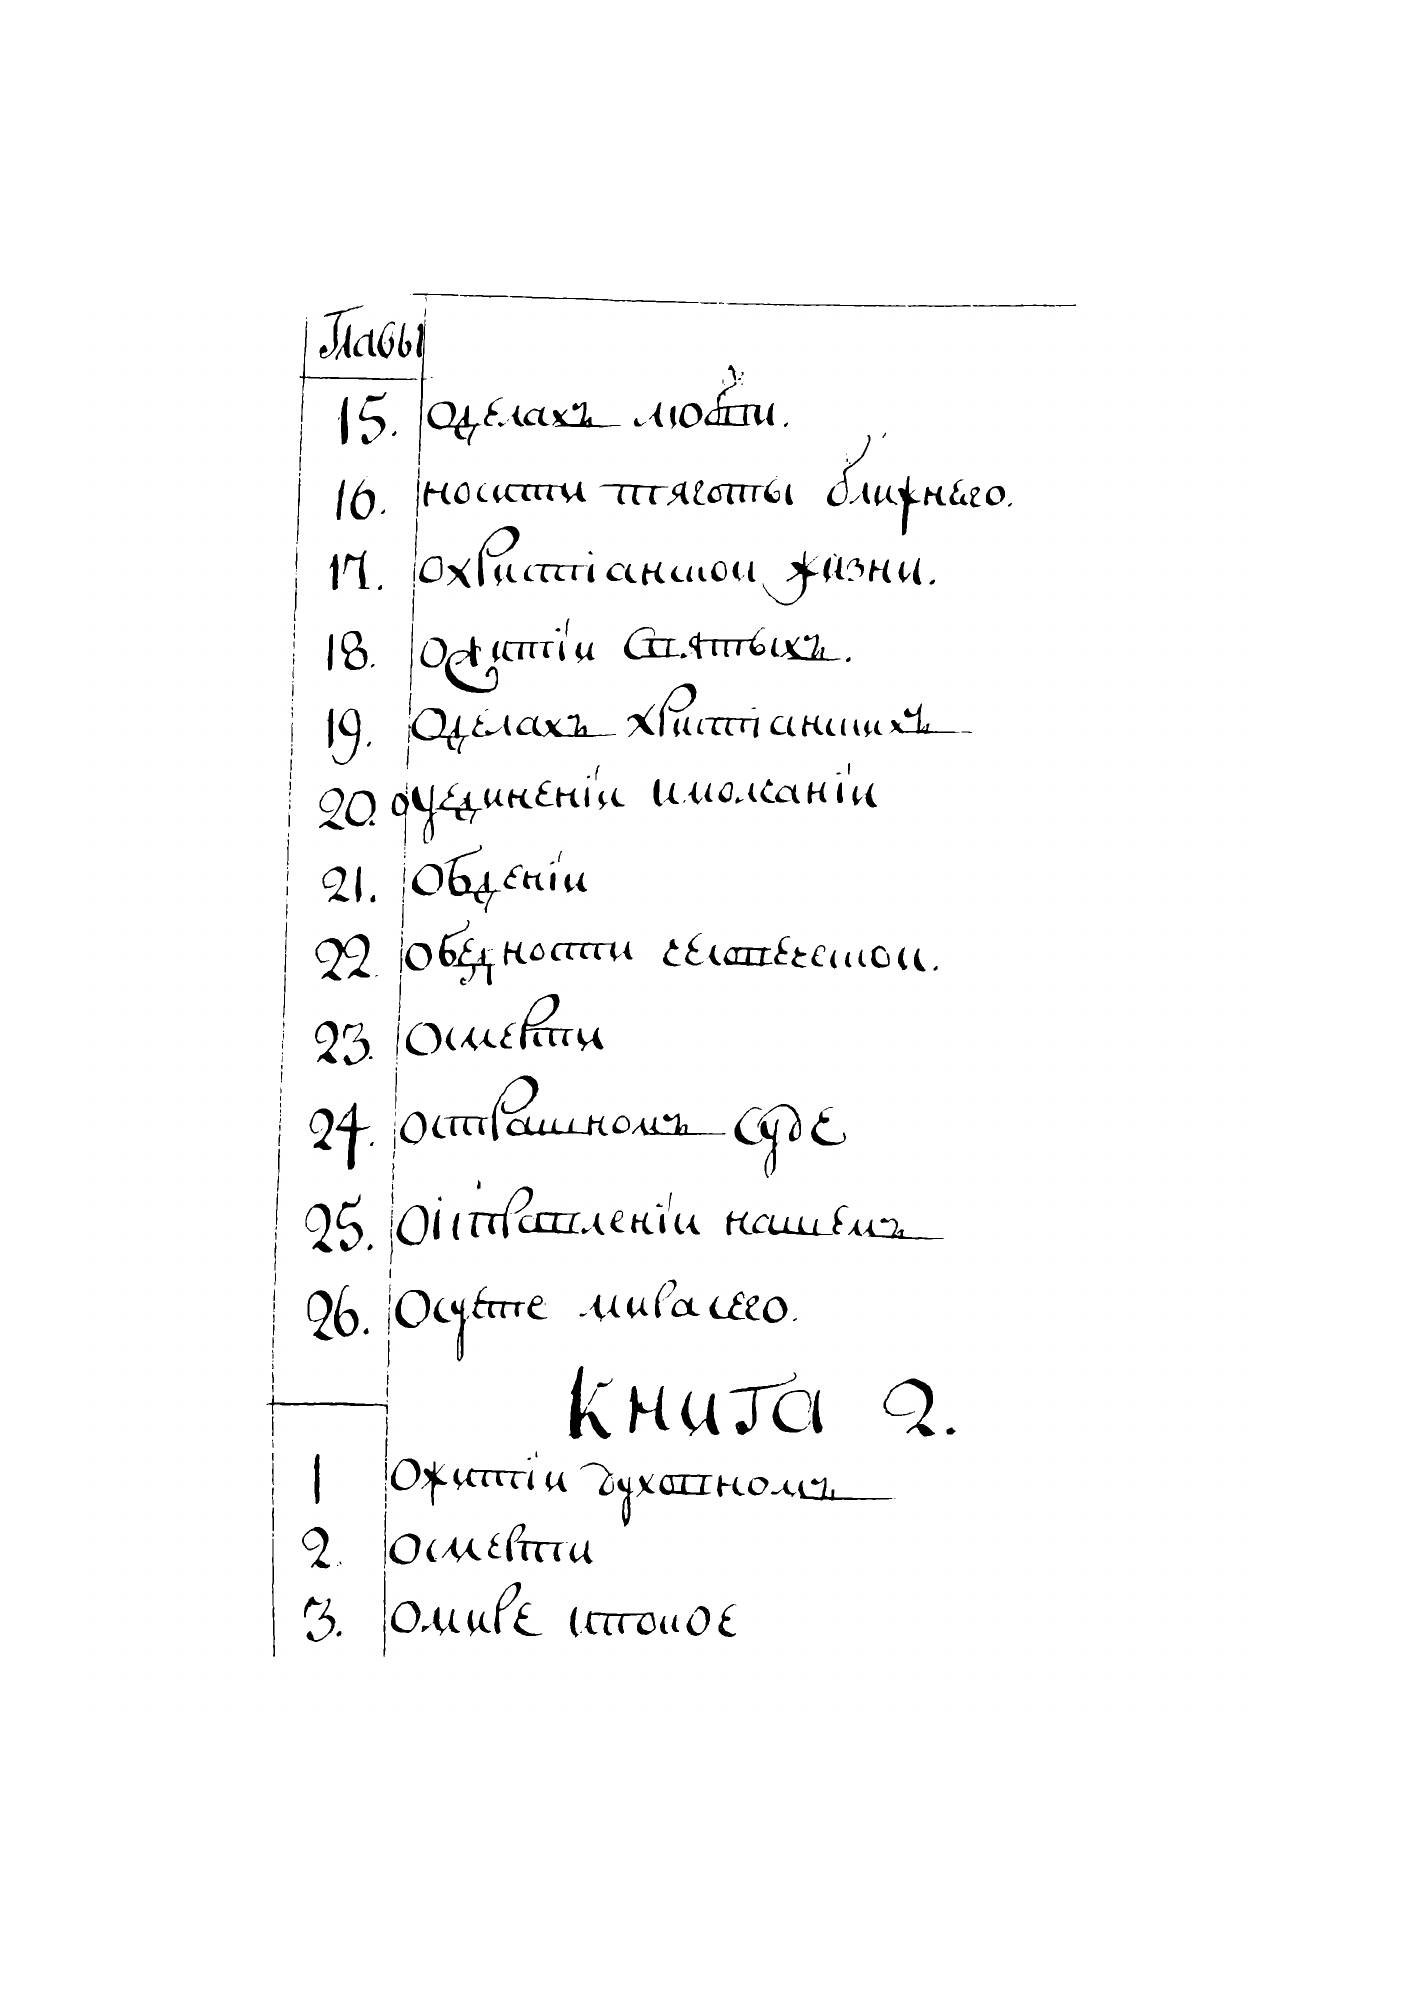 Главы
15. Оделахъ любви.
16. носити тяготы ближнего.
17. Охристианской жизни.
18. Ожитіи Святыхъ.
19. Оделахъ христіанскихъ
20. оуединеніи имолчаніи
21. Обденіи
22. Обедности человеческой.
23. Осмерти
24. Острашномъ суде
25. Оісправленіи нашемъ
26. Осуете мира сего.
Книга 2.
1 Ожитіи духовномъ
2. Осмерти
3. Омире